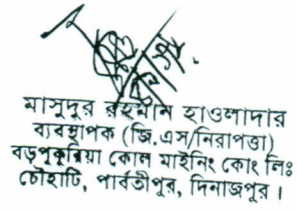 মাসুদুর রহমান হাওলাদার
ব্যবস্থাপক (জি.এস/নিরাপত্তা)
বড়পুকুরিয়া কোল মাইনিং কোং লিঃ
চৌহাটি, পার্বতীপুর, দিনাজপুর।